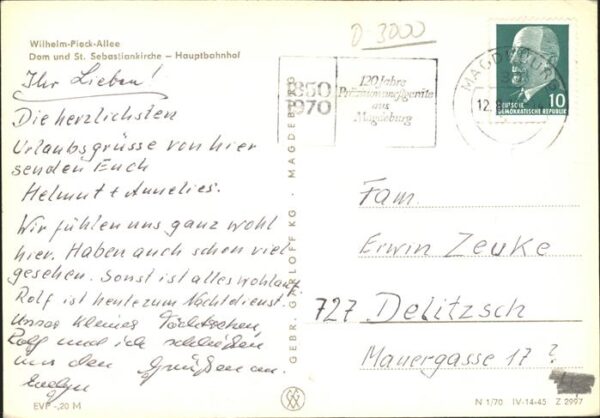 Wilhelm-Pieck-Allee
Dom und St. Sebastiankirche – Hauptbahnhof
Ihr Lieben!
Die herzlichsten
Urlaubsgrüsse von hier
senden Euch
Helmut + Annelies.
Wir fühlen uns ganz wohl
hier. Haben auch schon viel
gesehen. Sonst ist alles wohlauf.
Rolf ist heute zum Nachtdienst.
Unser kleines Töchterchen,
Rolf und ich schließen
uns den Grüßen an.
Evelyn
EVP -,20 M
GEBR. GARLOFF KG · MAGDEBURG
D-3000
1850
1970
120 Jahre
Präzisionsmeßgeräte
aus
Magdeburg
MAGDEBURG
12.
10
DEUTSCHE
DEMOKRATISCHE REPUBLIK
Fam.
Erwin Zeuke
727 Delitzsch
Mauergasse 17 ?
N 1/70 IV-14-45 Z 2997